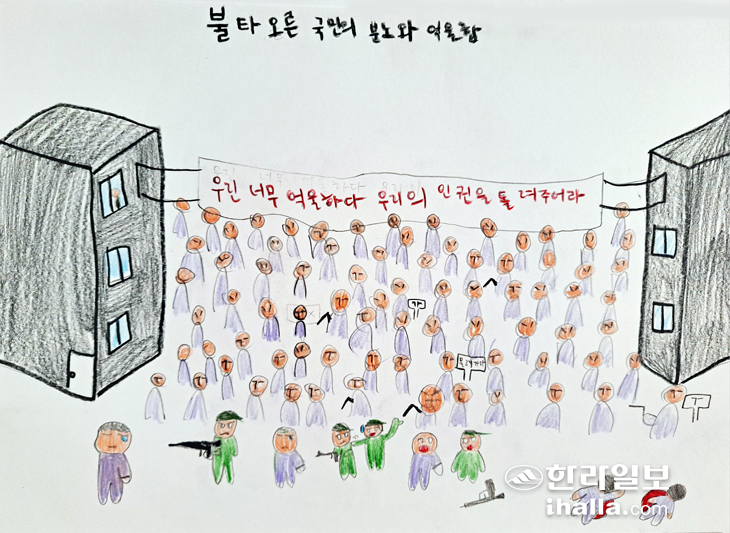 불타오른 국민의 분노와 억울함
우린 너무 억울하다 우리의 인권을 돌려주어라
한라일보
ihalla.com